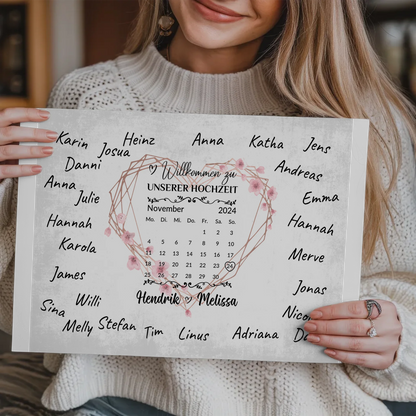 Karin Heinz Anna Katha Jens
Josua
Danni Andreas
Anna
Julie Emma
Hannah Hannah
Karola
Merve
James
Jonas
Willi
Sina
Melly Stefan Tim Linus Adriana
♡ Willkommen zu
UNSERER HOCHZEIT
November 2024
Mo. Di. Mi. Do. Fr. Sa. So.
1 2 3
4 5 6 7 8 9 10
11 12 13 14 15 16 17
18 19 20 21 22 23 24
25 26 27 28 29 30
Hendrik ♡ Melissa